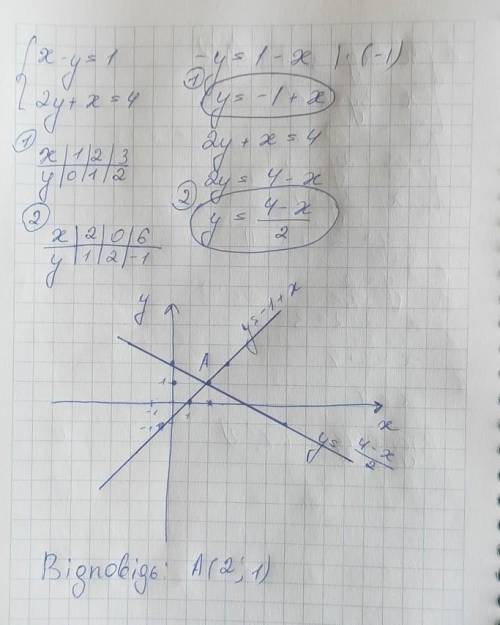 x - y = 1
2y + x = 4
-y = 1 - x | · (-1)
① y = -1 + x
2y + x = 4
2y = 4 - x
② y = (4-x)/2
①
x | 1 | 2 | 3
y | 0 | 1 | 2
②
x | 2 | 0 | 6
y | 1 | 2 | -1
y
y=-1+x
A
1
-1
1
-1
x
y= (4-x)/2
Відповідь: A(2; 1)